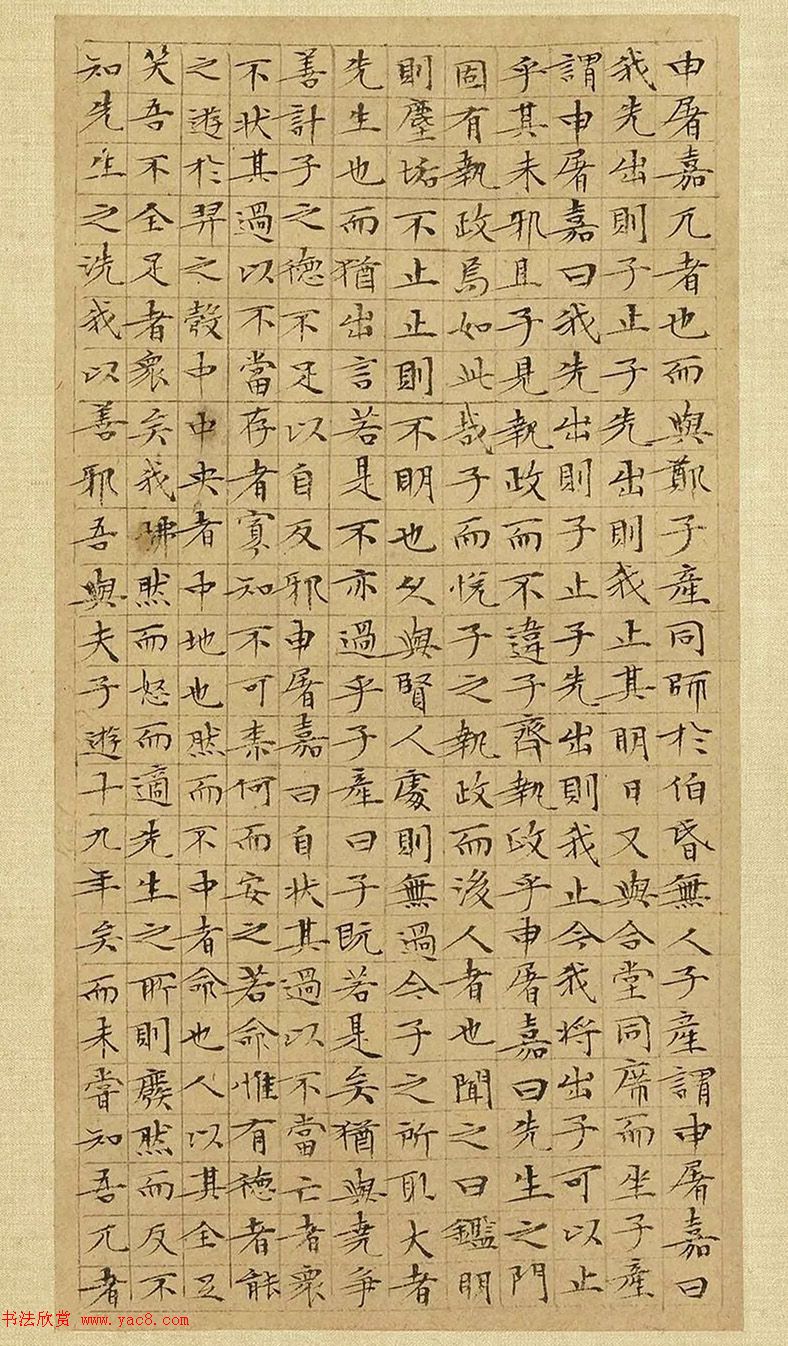 申屠嘉兀者也而與鄭子產同師於伯昏無人子產謂申屠嘉曰
我先出則子止子先出則我止其明日又與合堂同席而坐子產
謂申屠嘉曰我先出則子止子先出則我止今我將出子可以止
乎其未邪且子見執政而不違子齊執政乎申屠嘉曰先生之門
固有執政焉如此哉子而悅子之執政而後人者也聞之曰鑑明
則塵垢不止止則不明也久與賢人處則無過今子之所取大者
先生也而猶出言若是不亦過乎子產曰子既若是矣猶與堯爭
善計子之德不足以自反邪申屠嘉曰自狀其過以不當亡者衆
不狀其過以不當存者寡知不可柰何而安之若命惟有德者能
之遊於羿之彀中中央者中地也然而不中者命也人以其全足
笑吾不全足者衆矣我怫然而怒而適先生之所則廢然而反不
知先生之洗我以善邪吾與夫子遊十九年矣而未嘗知吾兀者
书法欣赏 www.yac8.com